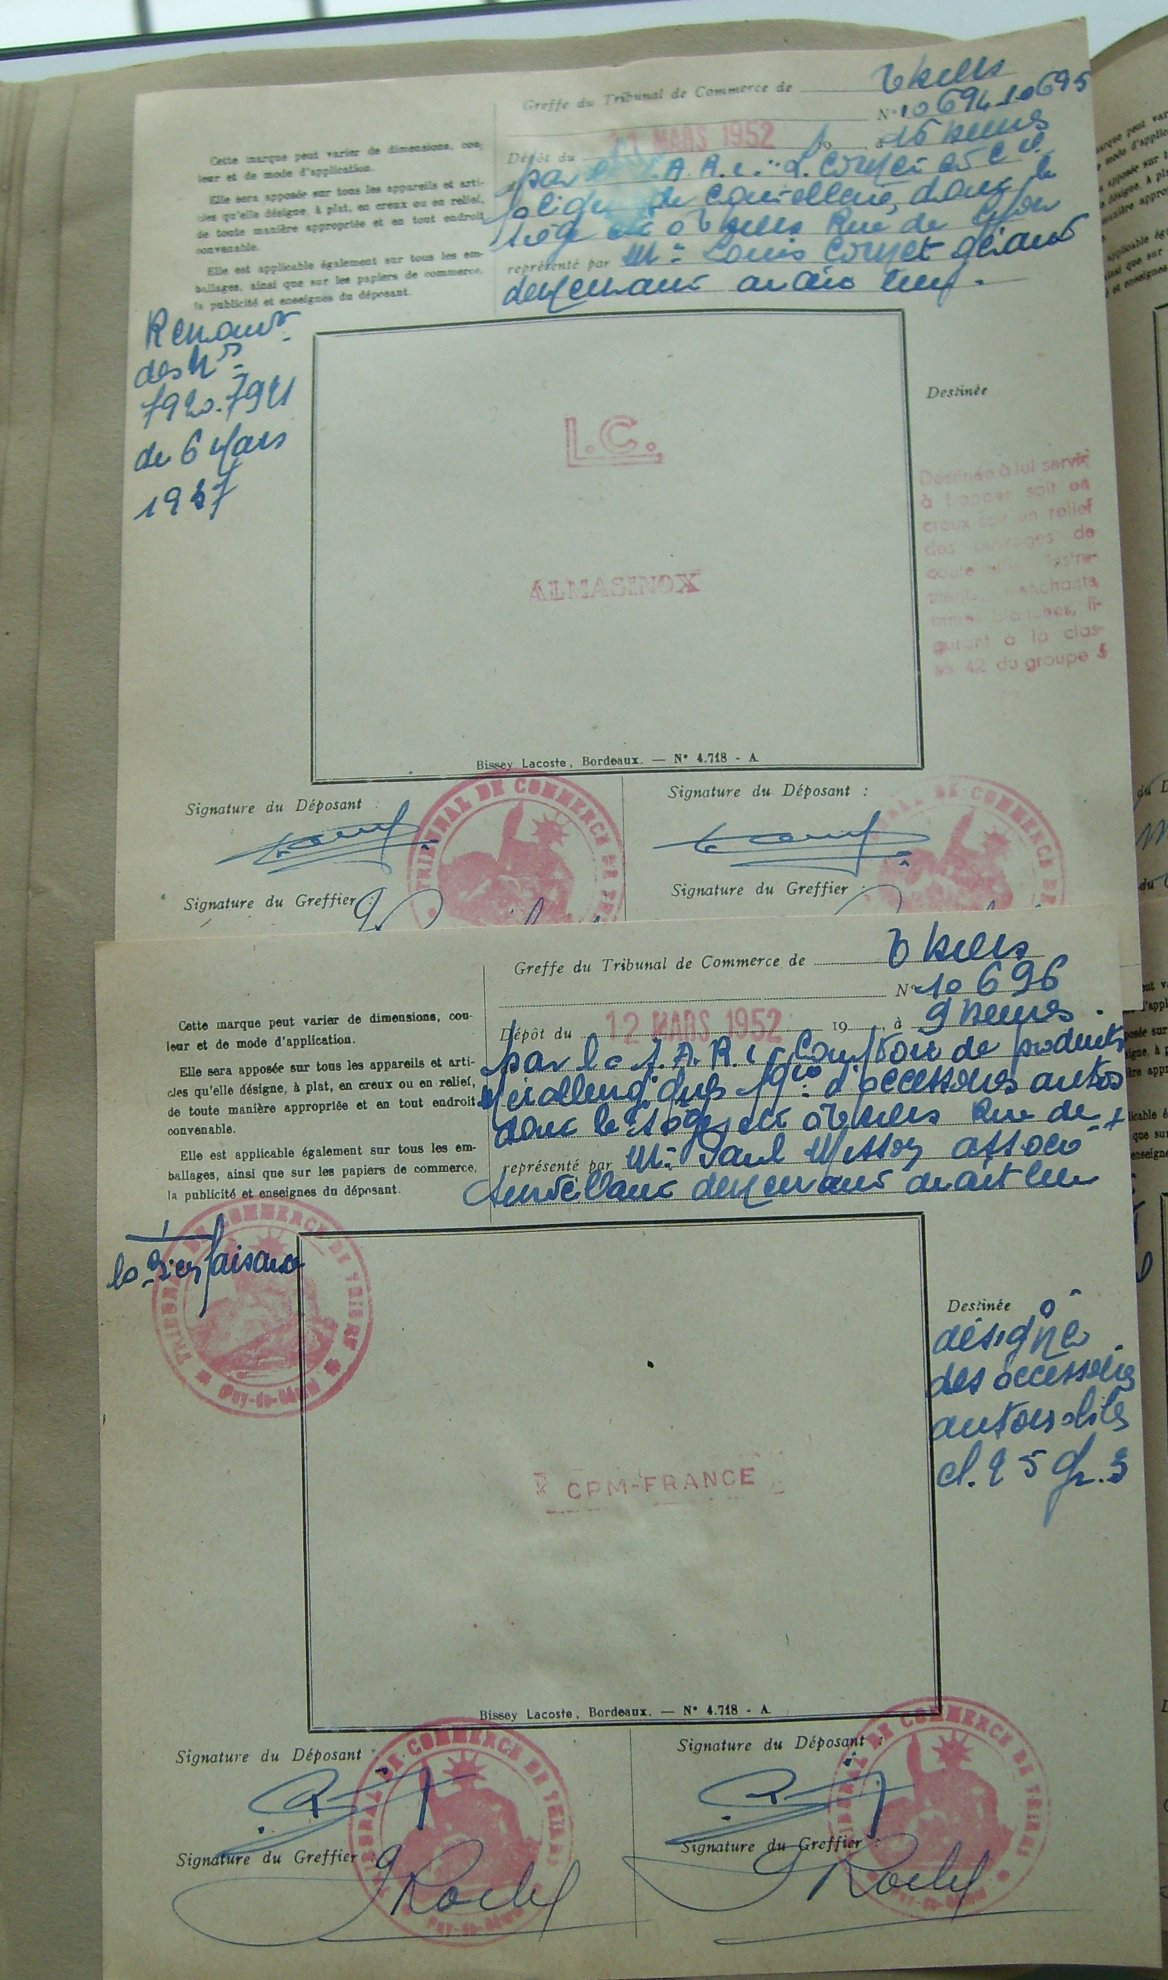 Greffe du Tribunal de Commerce de Thiers
N° 10694 10695
Dépôt du 11 MARS 1952 19 à 16 heures
par la S.A.R.L.
de coutellerie, dont le
siège est à Thiers Rue de Lyon
représenté par Mr Louis gérant
demeurant au dit lieu.
Cette marque peut varier de dimensions, cou-
leur et de mode d'application.
Elle sera apposée sur tous les appareils et arti-
cles qu'elle désigne, à plat, en creux ou en relief,
de toute manière appropriée et en tout endroit
convenable.
Elle est applicable également sur tous les em-
ballages, ainsi que sur les papiers de commerce,
la publicité et enseignes du déposant.
Renouv.
des Nos
7920.7921
du 6 Mars
1937
L.C.
ALMASINOX
Destinée
Destinée à lui servir
à frapper soit en
creux soit en relief
des ouvrages de
coutellerie, instru-
ments tranchants,
armes blanches, fi-
gurant à la clas-
se 42 du groupe 5
Bissey Lacoste, Bordeaux. — N° 4.718 - A
Signature du Déposant :
Signature du Déposant :
TRIBUNAL DE COMMERCE DE
TRIBUNAL DE COMMERCE DE
Signature du Greffier :
Signature du Greffier :
Greffe du Tribunal de Commerce de Thiers
N° 10696
Dépôt du 12 MARS 1952 19 à 9 heures
par la S.A.R.L. Comptoir de produits
métallurgiques d'accessoires autos
dont le siège est à Thiers Rue de
représenté par Mr Paul associé
surveillant demeurant au dit lieu
Cette marque peut varier de dimensions, cou-
leur et de mode d'application.
Elle sera apposée sur tous les appareils et arti-
cles qu'elle désigne, à plat, en creux ou en relief,
de toute manière appropriée et en tout endroit
convenable.
Elle est applicable également sur tous les em-
ballages, ainsi que sur les papiers de commerce,
la publicité et enseignes du déposant.
la Bienfaisance
TRIBUNAL DE COMMERCE DE THIERS
Puy-de-Dôme
CPM-FRANCE
Destinée à
désigner
des accessoires
automobiles
cl. 25 gr. 3
Bissey Lacoste, Bordeaux. — N° 4.718 - A
Signature du Déposant :
Signature du Déposant :
TRIBUNAL DE COMMERCE DE THIERS
Puy-de-Dôme
TRIBUNAL DE COMMERCE DE THIERS
Puy-de-Dôme
Signature du Greffier :
Signature du Greffier :